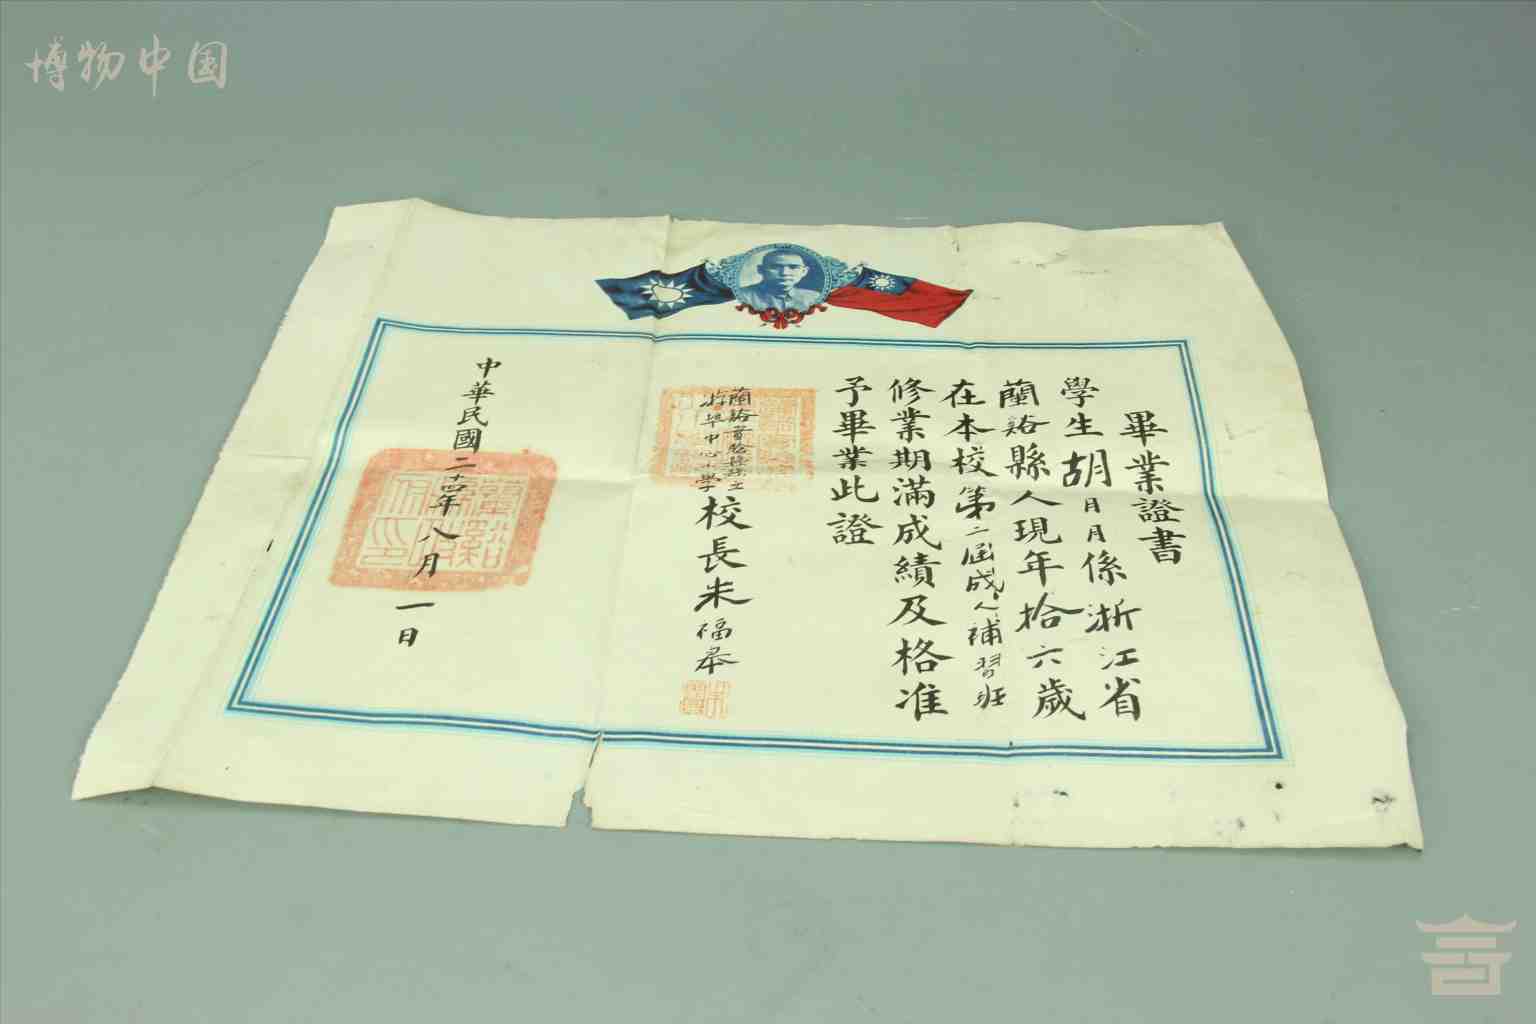 博物中国
畢業證書
學生胡日月係浙江省
蘭谿縣人現年拾六歲
在本校第二屆成人補習班
修業期滿成績及格准
予畢業此證
蘭谿實驗縣縣立
游埠中心小學校長朱福
中華民國二十四年八月一日